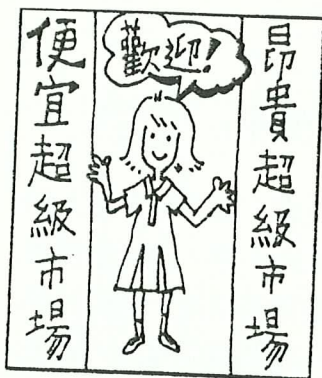 昂貴超級市場
歡迎!
便宜超級市場